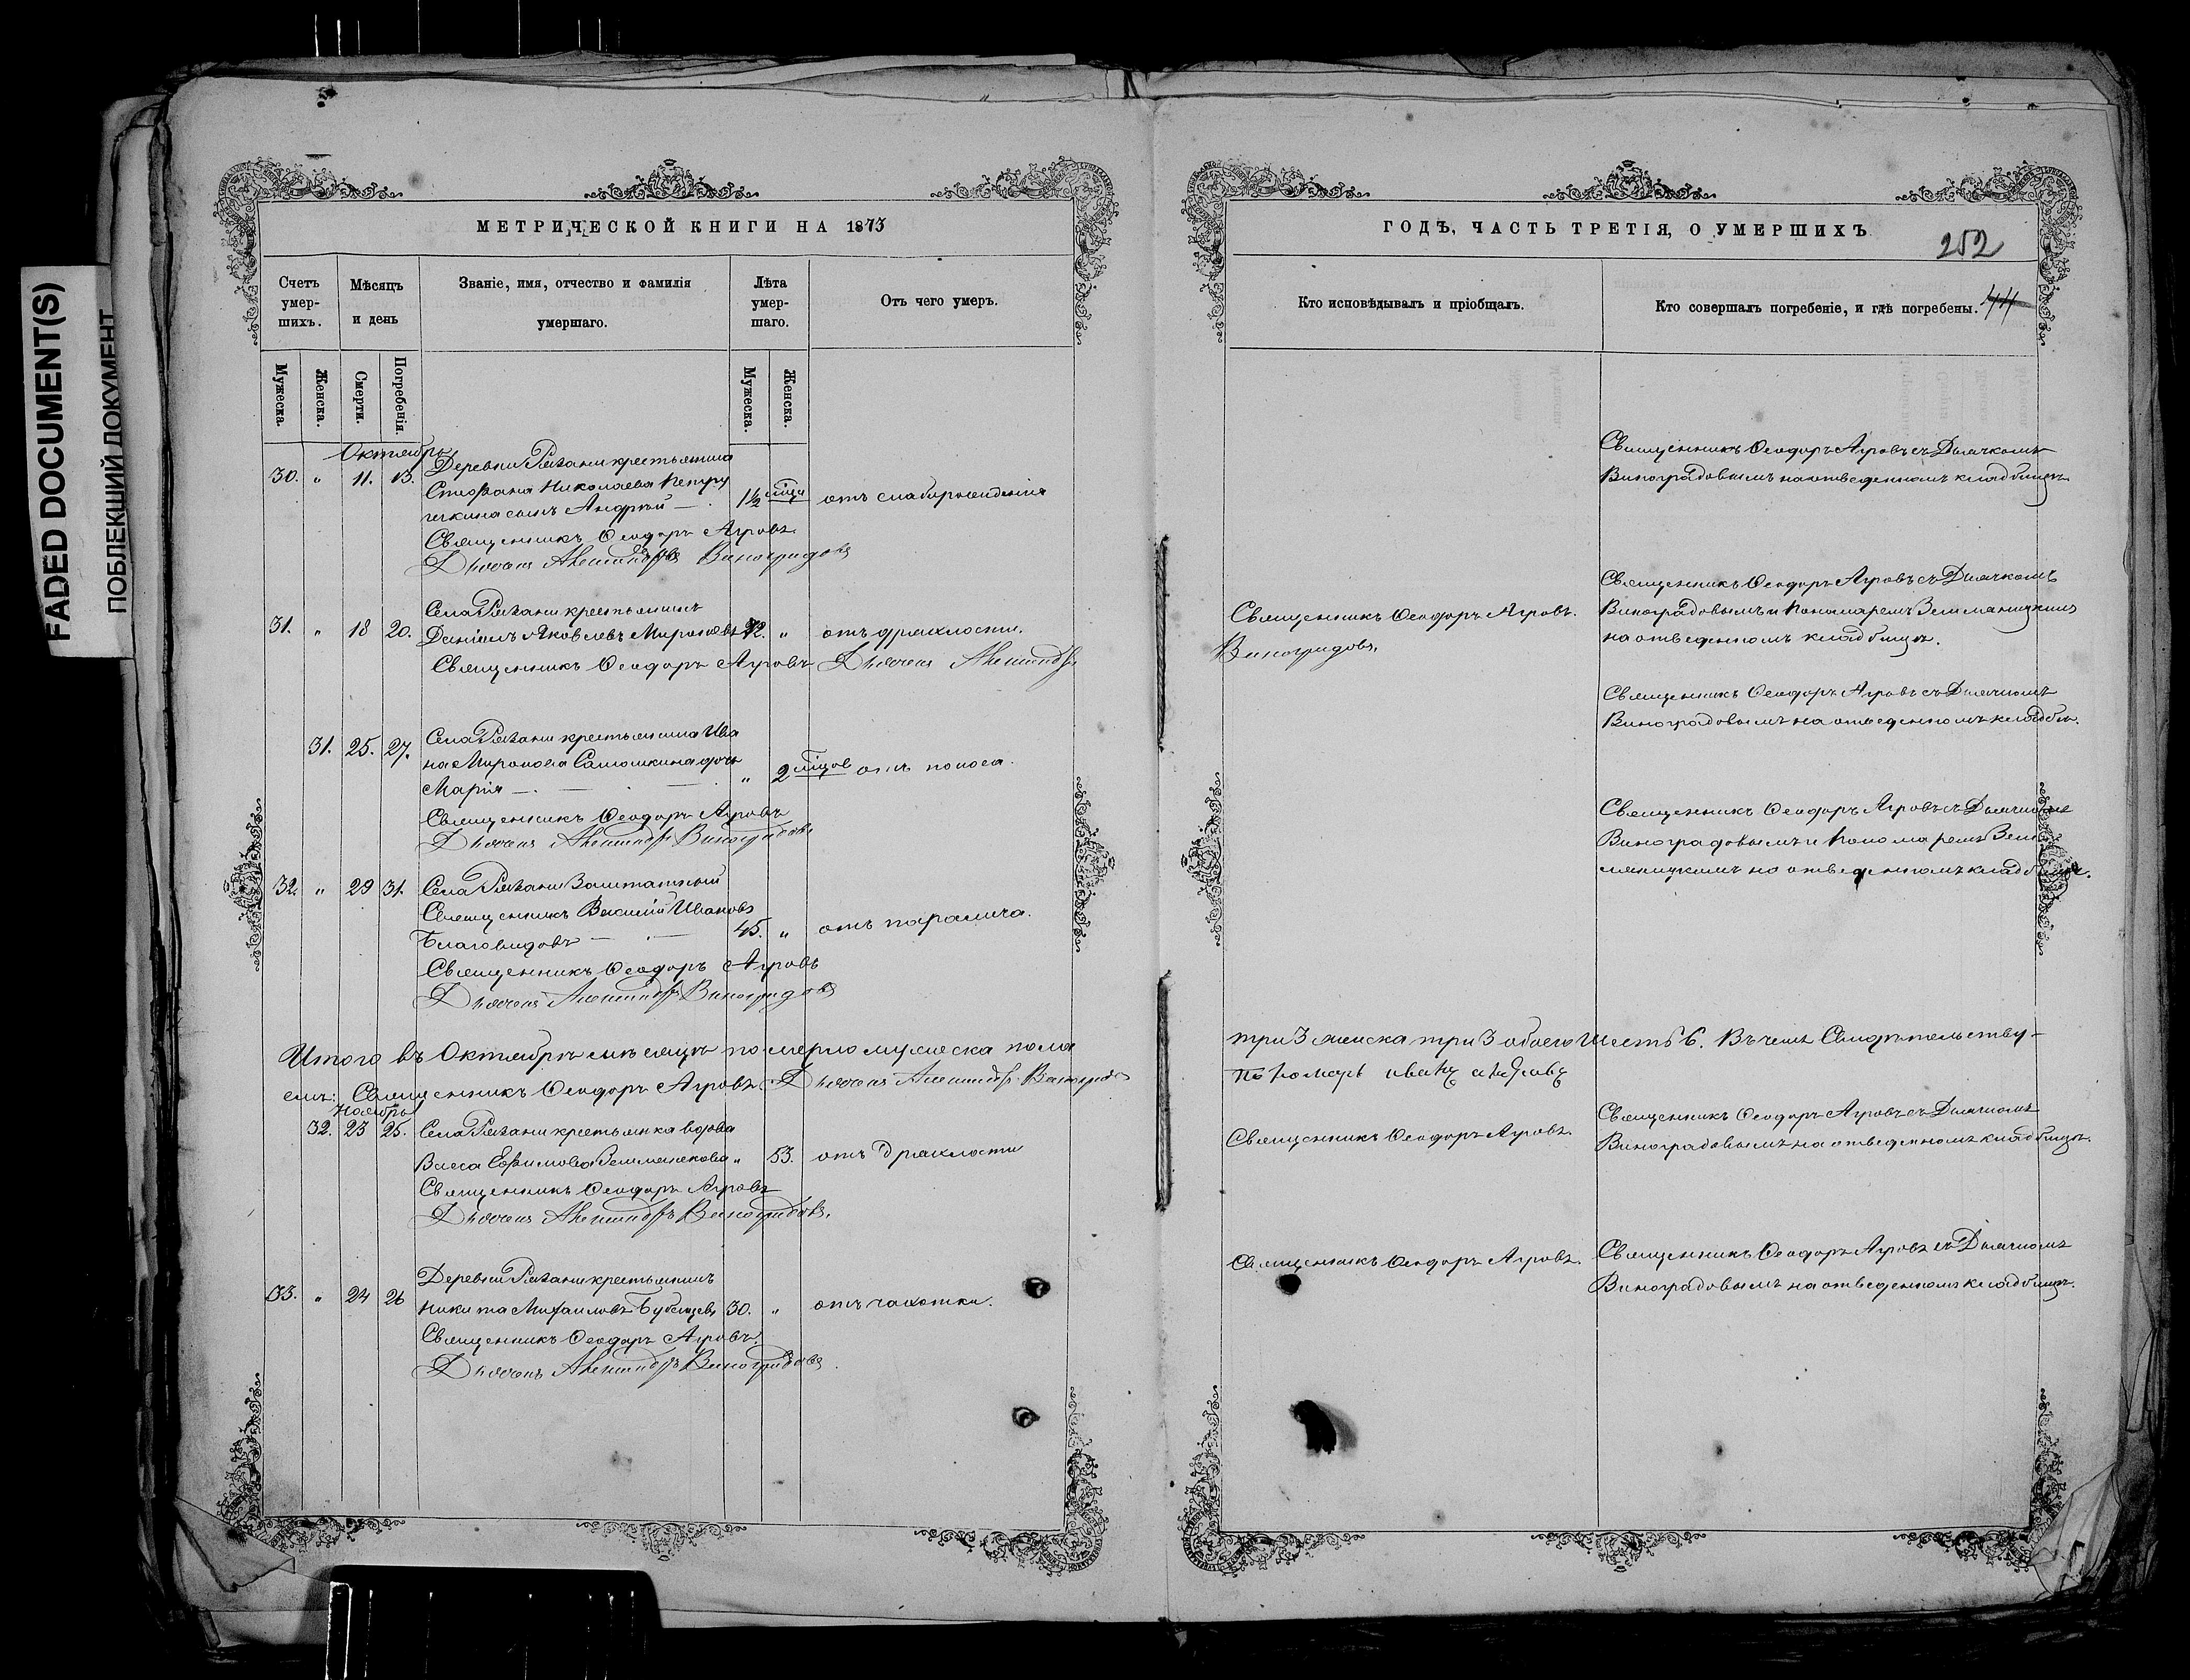 FADED DOCUMENT(S)
ПОБЛЕКШИЙ ДОКУМЕНТ
МЕТРИЧЕСКОЙ КНИГИ НА 1873
Счетъ умер-шихъ.
Мѣсяцъ и день
Званіе, имя, отчество и фамилія умершаго.
Лѣта умер-шаго.
Отъ чего умеръ.
Мужеска.
Женска.
Смерти.
Погребенія.
Мужеска.
Женска.
Октябрь
30. " 11. 13. Деревни Рязани крестьянина
Стефана Николаева Петру
шкина сынъ Андрей — 1½ мѣся отъ слаборожденія
Священникъ Ѳеодоръ Агровъ
Дьячекъ Александръ Виноградовъ
31. " 18 20. Села Рязани крестьянинъ
Даніилъ Яковлевъ Мироновъ 72. " отъ дряхлости.
Священникъ Ѳеодоръ Агровъ Дьячекъ Александръ
31. 25. 27. Села Рязани крестьянина Ива
на Миронова Самошкина дочь
Марія — " 2 мѣсяцов отъ поноса.
Священникъ Ѳеодоръ Агровъ
Дьячекъ Александръ Виноградовъ
32. " 29 31. Села Рязани Заштатный
Священникъ Василій Ивановъ
Благовидовъ — 45. " отъ паралича.
Священникъ Ѳеодоръ Агровъ
Дьячекъ Александръ Виноградовъ
Итого въ Октябрѣ мѣсяцѣ померло мужеска пола
емъ: Священникъ Ѳеодоръ Агровъ Дьячекъ Александръ Виноградо
Ноябрь
32. 23 25. Села Рязани крестьянка вдова
Васса Ефимова " 53. отъ дряхлости
Священникъ Ѳеодоръ Агровъ
Дьячекъ Александръ Виноградовъ.
33. " 24 26 Деревни Рязани крестьянинъ
Никита Михаиловъ Бубенцевъ 30. " отъ чахотки.
Священникъ Ѳеодоръ Агровъ.
Дьячекъ Александръ Виноградовъ.
ГОДЪ, ЧАСТЬ ТРЕТІЯ, О УМЕРШИХЪ
252
Кто исповѣдывалъ и пріобщалъ.
Кто совершалъ погребеніе, и гдѣ погребены.
Священникъ Ѳеодоръ Агровъ съ Дьячкомъ
Виноградовымъ на отведенномъ кладбищѣ.
Священникъ Ѳеодоръ Агровъ.
Виноградовъ.
Священникъ Ѳеодоръ Агровъ съ Дьячкомъ
Виноградовымъ и Пономаремъ Земляницкимъ
на отведенномъ кладбищѣ.
Священникъ Ѳеодоръ Агровъ съ Дьячкомъ
Виноградовымъ на отведенномъ кладбищ.
Священникъ Ѳеодоръ Агровъ съ Дьячкомъ
Виноградовымъ и Пономаремъ Зем
ляницкимъ на отведенномъ кладбищѣ.
три 3 женска три 3 обоего шесть 6. Въ чемъ Свидѣтельству-
Пономарь иванъ
Священникъ Ѳеодоръ Агровъ.
Священникъ Ѳеодоръ Агровъ съ Дьячкомъ
Виноградовымъ на отведенномъ кладбищѣ.
Священникъ Ѳеодоръ Агровъ.
Священникъ Ѳеодоръ Агровъ съ Дьячкомъ
Виноградовымъ на отведенномъ кладбищѣ.